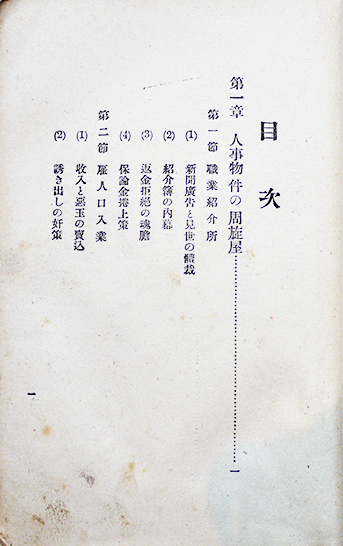 目次
第一章 人事物件の周旋屋……………………………一
第一節 職業紹介所
(1) 新聞廣告と見世の體裁
(2) 紹介簿の內幕
(3) 返金拒絕の魂膽
(4) 保險金捲上策
第二節 雇人口入業
(1) 收入と惡玉の賣込
(2) 誘き出しの奸策
一